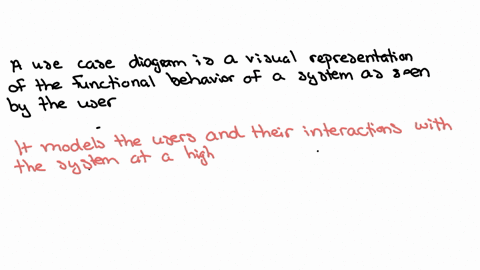 A use case diagram is a visual representation
of the functional behavior of a system as seen
by the user
It models the users and their interactions with
the system at a high